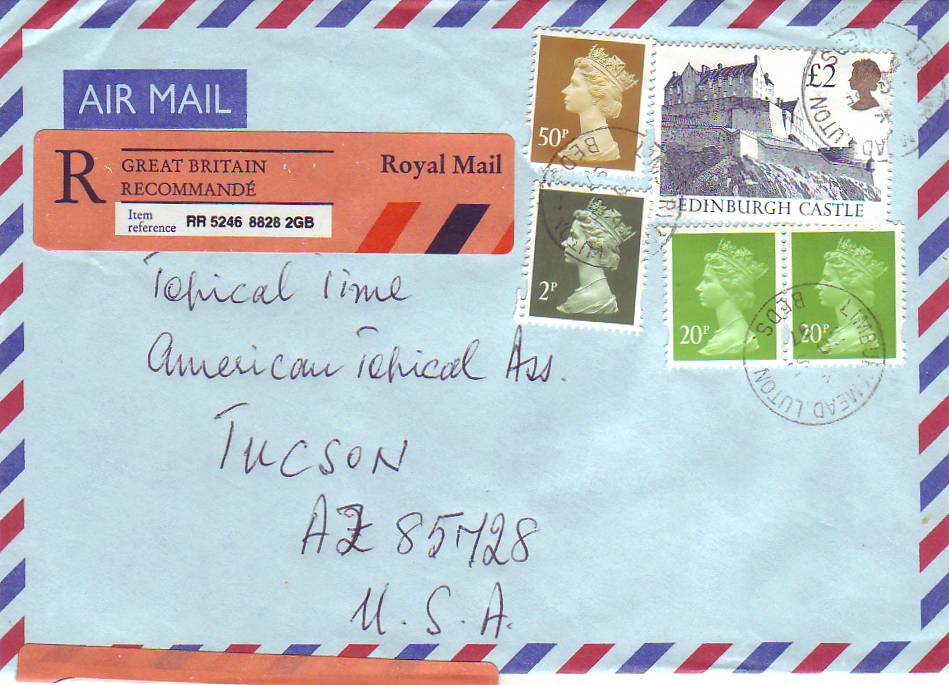 AIR MAIL
R
GREAT BRITAIN
RECOMMANDÉ
Royal Mail
Item
reference
RR 5246 8828 2GB
50P
£2
EDINBURGH CASTLE
2P
20P
20P
LUTON
BEDS
MEAD, LUTON
BEDS
Topical Time
American Topical Ass.
TUCSON
AZ 85728
U.S.A.